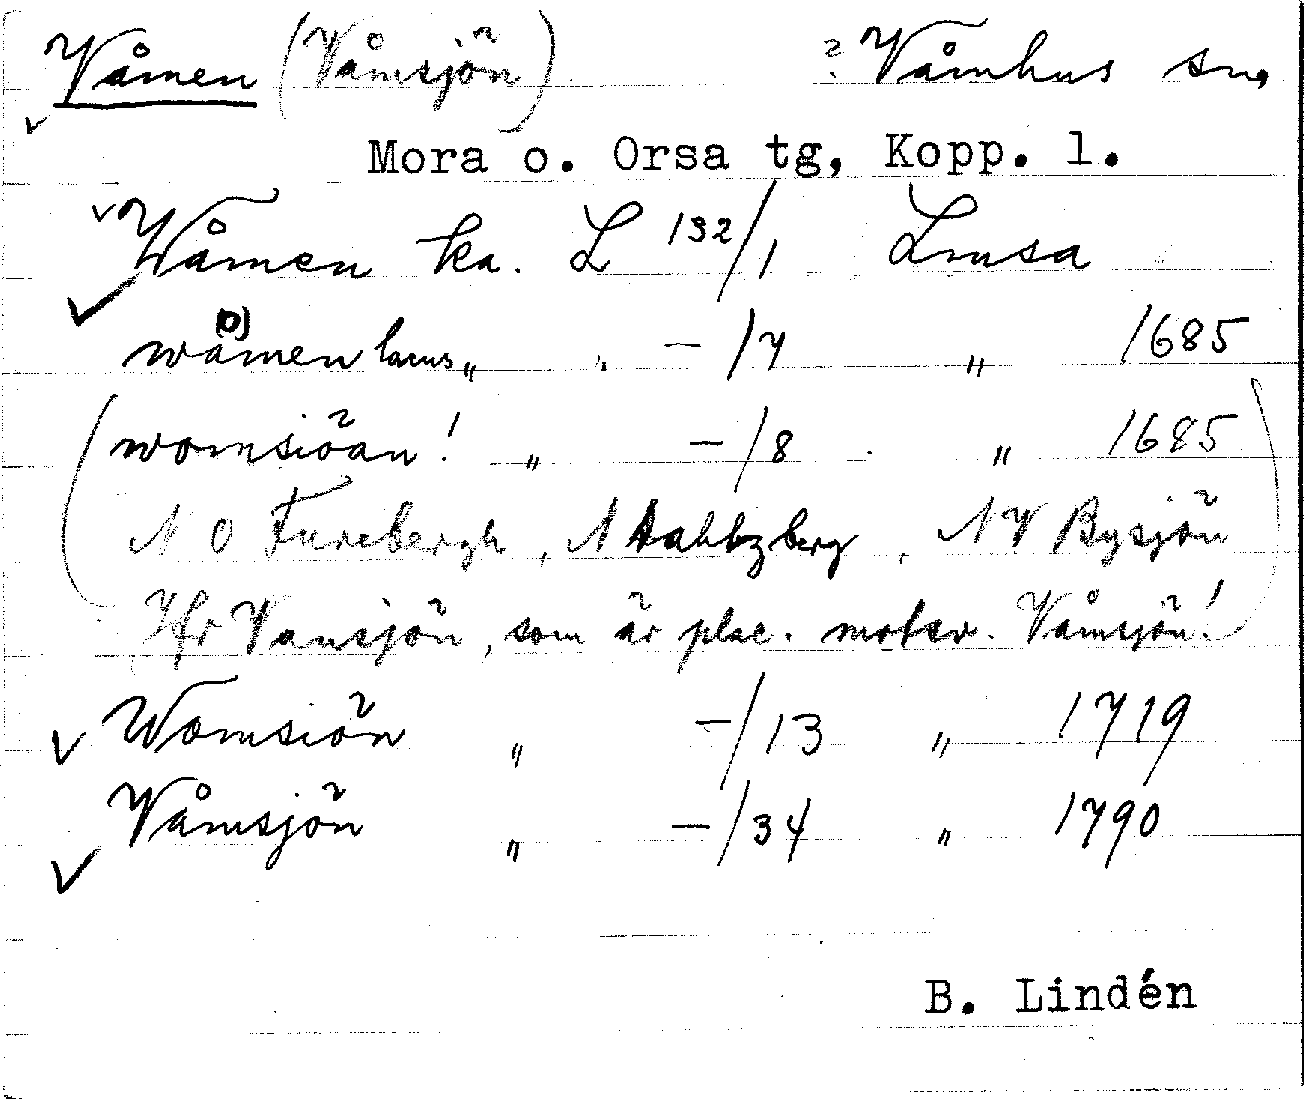 Våmen (Våmsjön) ? Våmhus sn,
Mora o. Orsa tg, Kopp. l.
Wåmen ka. L 132/1 Lmsa
wåmen lacus „ „ – /7 „ 1685
(womsiöan! „ – /8 „ 1685
N O Furebergh, N Dahlszberg, N V Bysjön
Jfr Vansjön, som är plac. motsv. Våmsjön!)
Womsiön „ – /13 „ 1719
Våmsjön „ – /34 „ 1790
B. Lindén